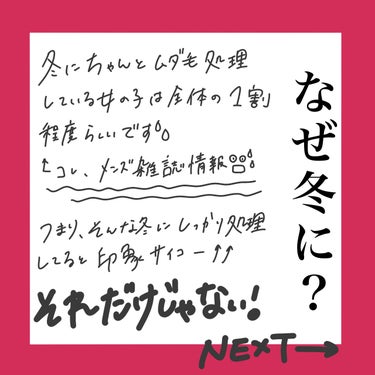 なぜ冬に？
冬にちゃんとムダ毛処理
している女の子は全体の1割
程度らしいです
↑コレ、メンズ雑誌情報
つまり、そんな冬にしっかり処理
してると印象サイコー↑↑
それだけじゃない！
NEXT→